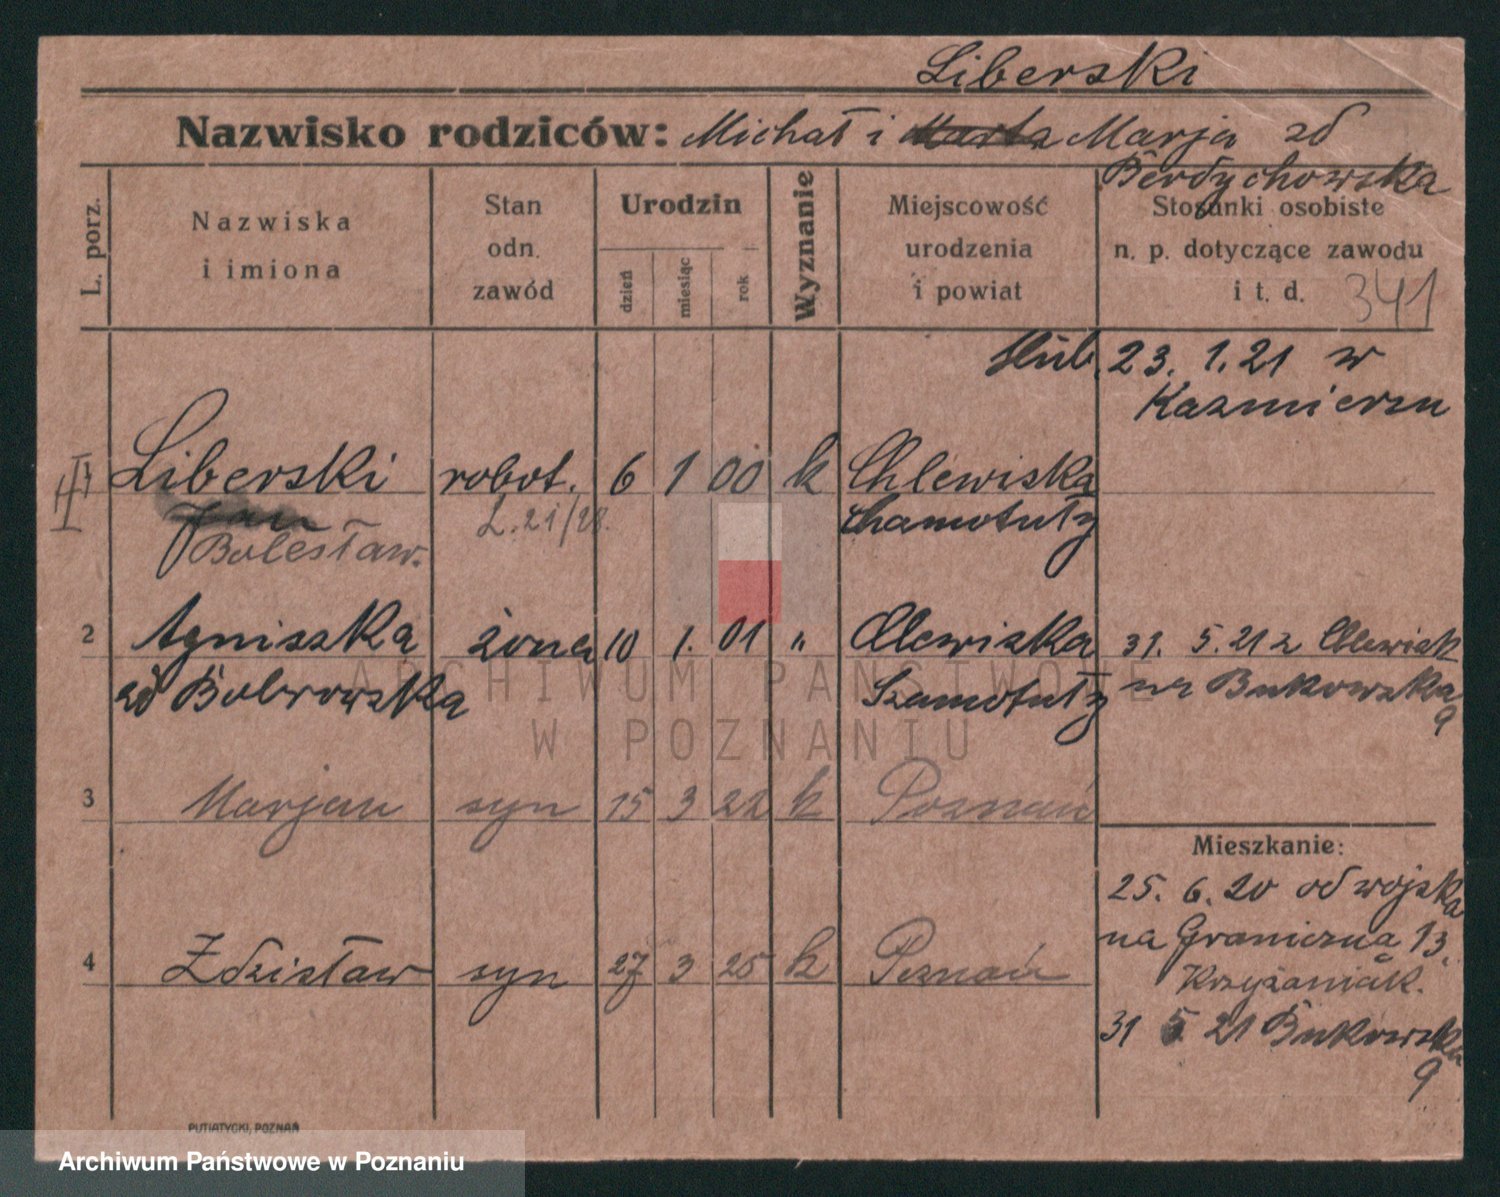 Liberski
Nazwisko rodziców: Michał i Marta Marja zd
Berdychowska
L. porz.
Nazwiska
i imiona
Stan
odn.
zawód
Urodzin
dzień
miesiąc
rok
Wyznanie
Miejscowość
urodzenia
i powiat
Stosunki osobiste
n. p. dotyczące zawodu
i t. d. 341
ślub. 23. 1. 21 w
Kazmierzu
III
1 Liberski robot. 6 1 00 k Chlewiska
Jan L. 21/28. Szamotuły
Bolesław.
2 Agniszka żona 10 1. 01 " Chlewiska 31. 5. 21 z Chlewisk
zd Bobrowska Szamotuły na Bukowską
9
3 Marjan syn 15 3 22 k Poznań
Mieszkanie:
25. 6. 20 od wojska
na Graniczną 13.
Krzyżaniak.
4 Zdzisław syn 27 3 25 k Poznań
31 5 21 Bukowska
9
PUTIATYCKI, POZNAŃ
ARCHIWUM PAŃSTWOWE
W POZNANIU
Archiwum Państwowe w Poznaniu